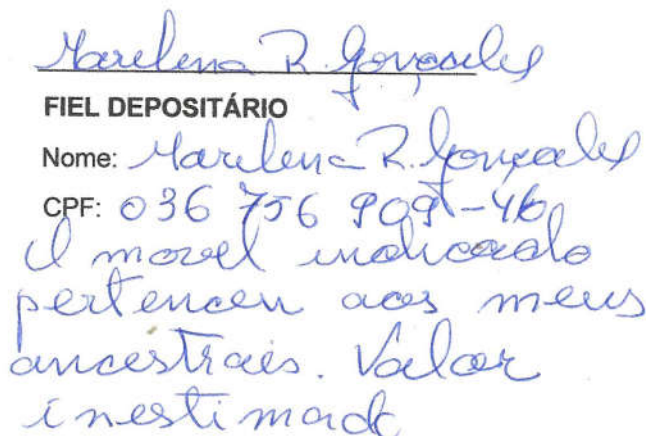 Marilena R. Gonçales
FIEL DEPOSITÁRIO
Nome: Marilena R. Gonçales
CPF: 036 756 909-46
O movel indicado
pertenceu aos meus
ancestrais. Valor
inestimado